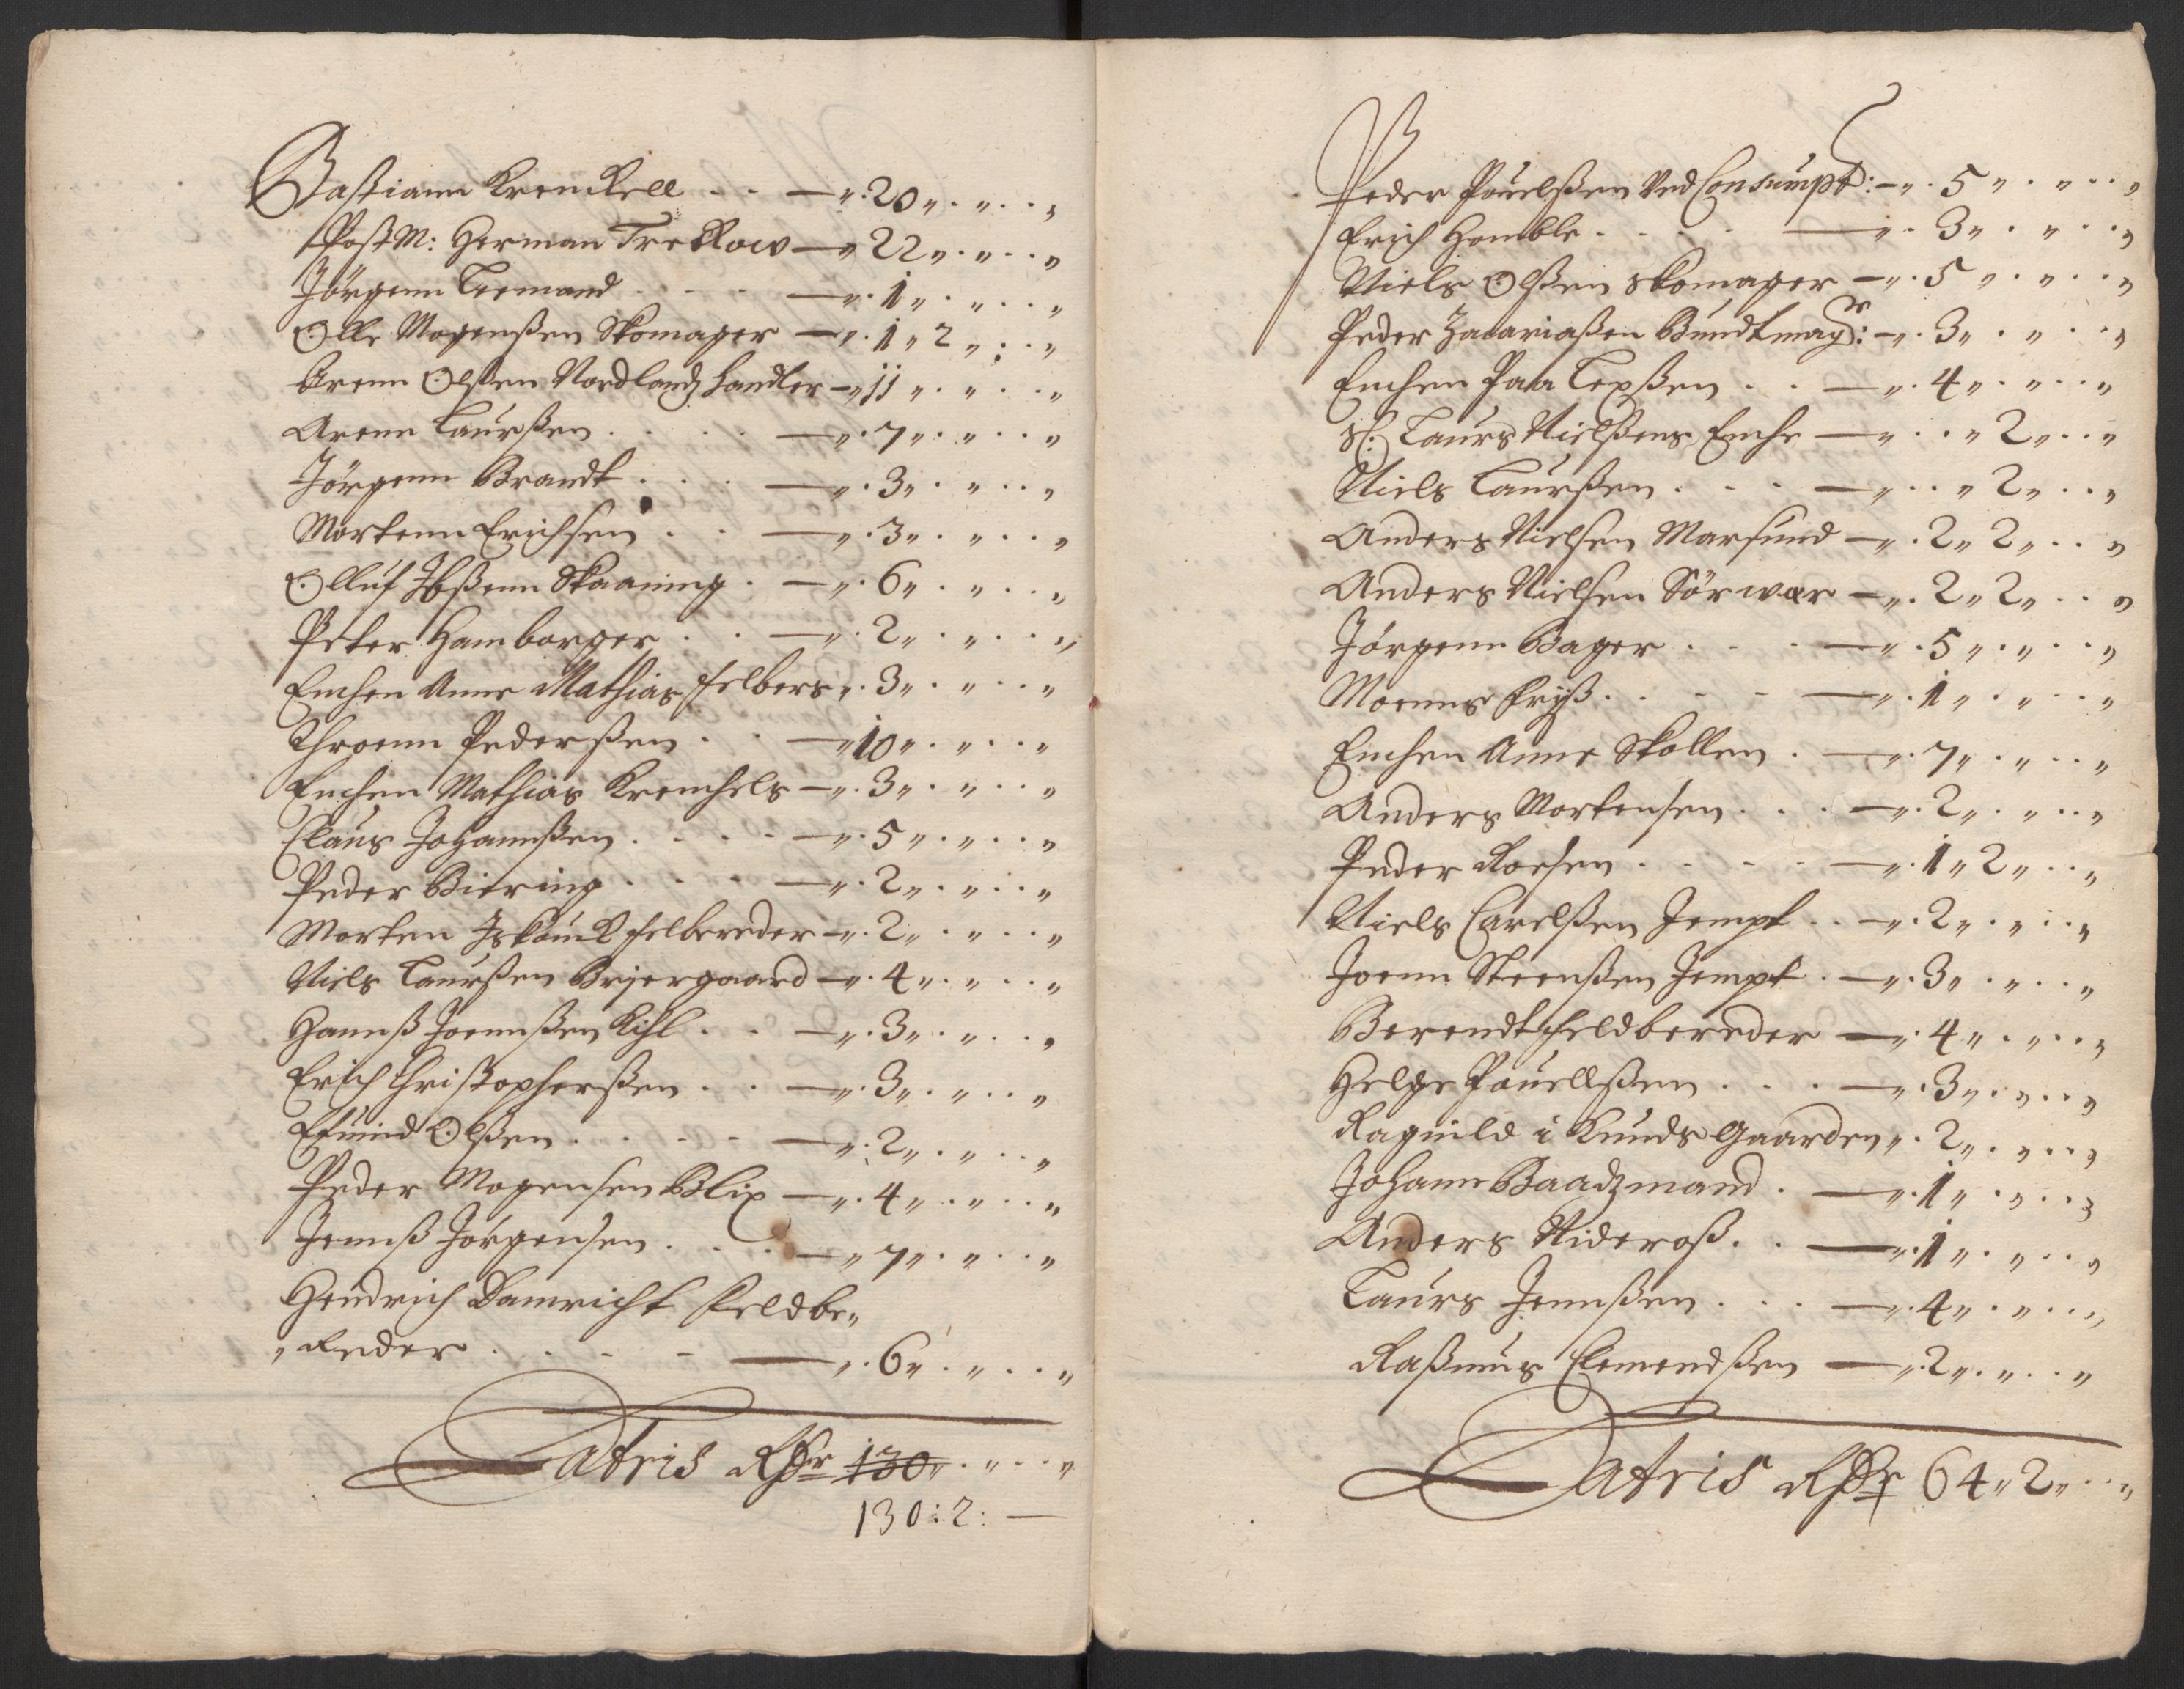 Bastiann Krenckell . . — „. 20 „ . „ . . „
PostM: Herman Treckow — „ 22 „ . „ . . „
Jörgenn Leemand . . . — „. 1 „ . „ . . „
Olle Mogenßen Skomager — „. 1 „ 2 „ . . „
Arenn Olßen Nordlandz handler — „ 11 „ . „ . . „
Arenn Laurßen . . . . — „. 7 „ . „ . . „
Jörgenn Brandt . . . — „. 3 „ . „ . . „
Mortenn Erichsen . . — „. 3 „ . „ . . „
Olluf Ibßenn Skaaning . — „. 6 „ . „ . . „
Peter Hamborger . . — „. 2 „ . „ . . „
Enchen Anne Mathias felbers „. 3 „ . „ . . „
Throenn Pederßen . . — „ 10 „ . „ . . „
Enchen Mathias Krenchels — „. 3 „ . „ . . „
Claus Johannßen . . . . — „. 5 „ . „ . . „
Peder Biering . . . . — „. 2 „ . „ . . „
Morten felbereder — „. 2 „ . „ . . „
Niels Laurßen Beyergaard — „. 4 „ . „ . . „
Hannß Joennßen Kihl . . — „. 3 „ . „ . . „
Erich Christopherßen . . — „. 3 „ . „ . . „
Efuind Olßen . . . . — „. 2 „ . „ . . „
Peder Mogensen Blix — „. 4 „ . „ . . „
Jennß Jörgensen . . . — „ 7 „ . „ . . „
Hendrich Damricht feldbe„
„Reder . . - - — „. 6 „ . „ . . „
Latris Rdr 130 „ . „ . . „
130 : 2 : —
Peder Pouelßen Ved Consumpt: — „. 5 „ . „ . . „
Erich Homble . . . . — „. 3 „ . „ . . „
Niels Olßen skomager — „. 5 „ . „ . . „
Peder Zacariaßen Bundtmagr: — „. 3 „ . „ . . „
Enchen Paa Lexßen . . — „. 4 „ . „ . . „
Sl: Laurs Nielßens Enche — „ . . „ 2 „ . . „
Niels Laurßen . . . — „ . . „ 2 „ . . „
Anders Nielsen Marsund — „. 2 „ 2 „ . . „
Anders Nielsen Sörwær — „. 2 „ 2 „ . . „
Jörgenn Bager . . . — „. 5 „ . „ . . „
Moenns fryß . . - - — „. 1 „ . „ . . „
Enchen Anne Skollen . — „. 7 „ . „ . . „
Anders Mortensen . . . — „. 2 „ . „ . . „
Peder Roesen . . . . — „. 1 „ 2 „ . . „
Niels Carelßen Jempt . . — „. 2 „ . „ . . „
Joenn Steenßen Jempt . — „. 3 „ . „ . . „
Berendt feldbereder — „. 4 „ . „ . . „
Helge Pouellßen . . . — „. 3 „ . „ . . „
Raguild i Knuds Gaarden „. 2 „ . „ . . „
Johann Baadzmand . — „. 1 „ . „ . . „
Anders Nideroß . . — „. 1 „ . „ . . „
Laurs Jennßen . . . — „. 4 „ . „ . . „
Raßmus Clemendßen — „. 2 „ . „ . . „
Latris Rdr 64 „ 2 „ . . „